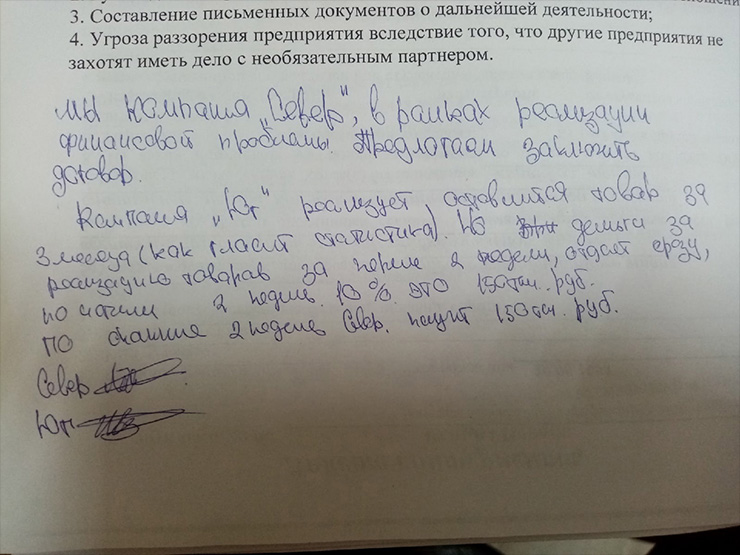 3. Составление письменных документов о дальнейшей деятельности;
4. Угроза раззорения предприятия вследствие того, что другие предприятия не
захотят иметь дело с необязательным партнером.
мы компания „Север", в рамках реализации
финансовой проблемы. Предлогаем заключить
договор.
Кампания „Юг" реализует, оставшится товар за
3 месеца (как гласит статистика). Но деньги за
реализацию товарав за первые 2 недели, отдает сразу,
2 недель. 10%. это 150 тыс. руб.
по 2 недели Север. 150 тыс. руб.
Север
Юг